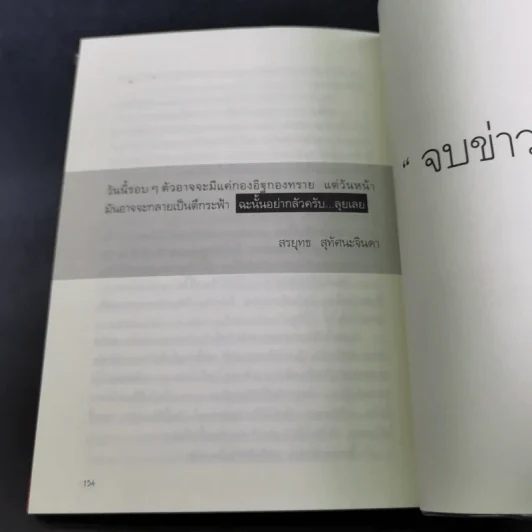 วันนี้รอบ ๆ ตัวอาจจะมีแค่กองอิฐกองทราย แต่วันหน้า
มันอาจจะกลายเป็นตึกระฟ้า ฉะนั้นอย่ากลัวครับ...ลุยเลย
สรยุทธ สุทัศนะจินดา
154
“ จบข่าว